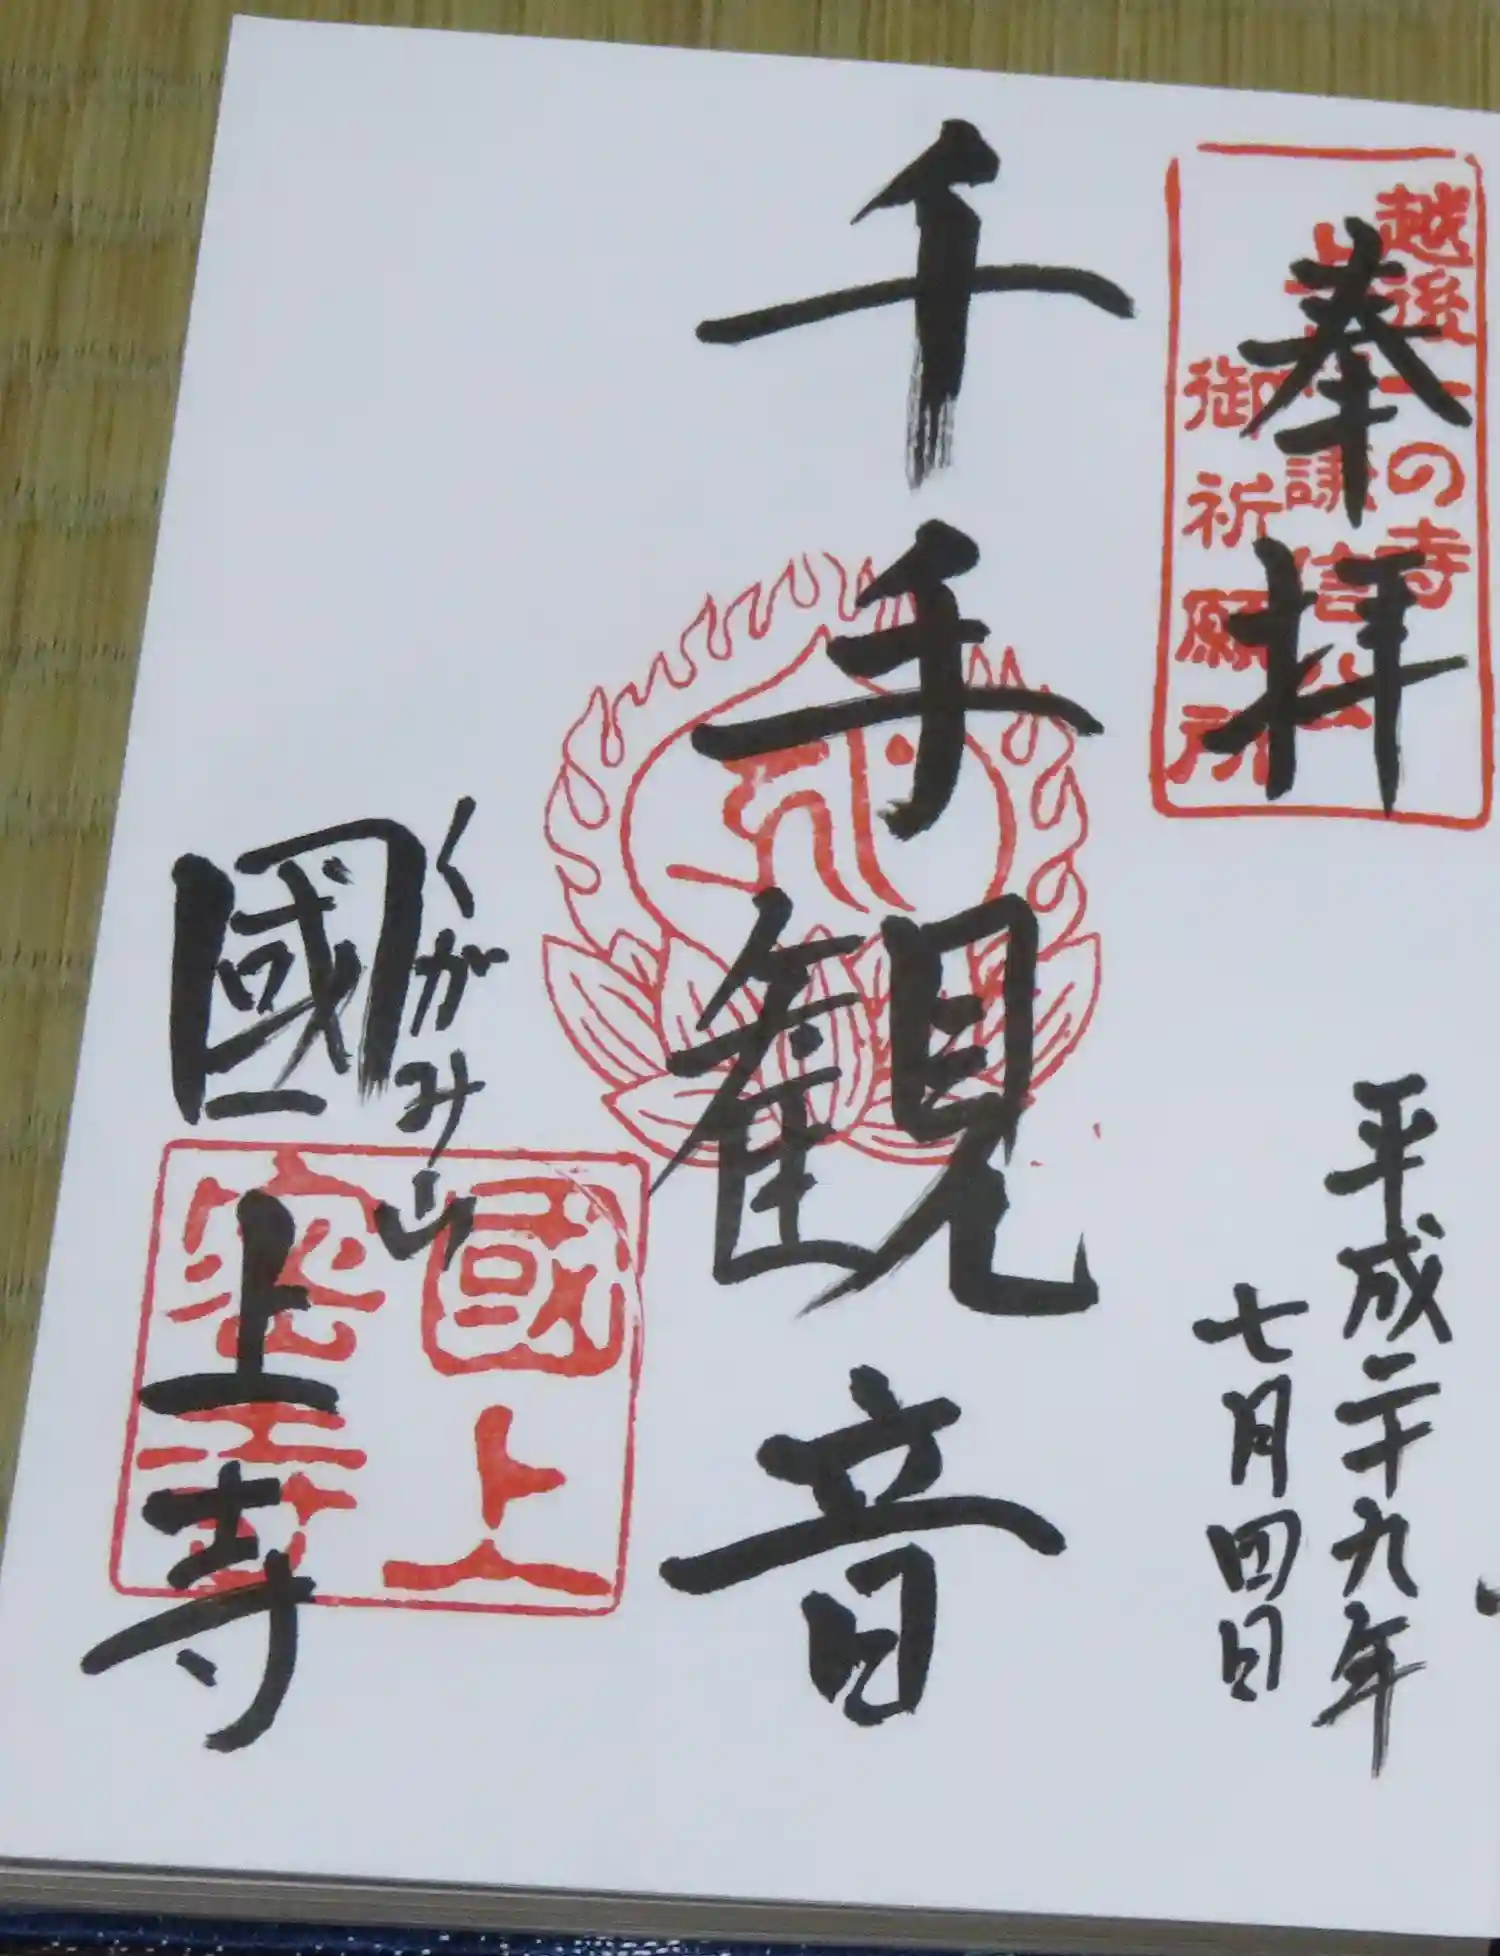 奉拝
越後一の寺
上杉謙信公
御祈願所
平成二十九年
七月四日
千手観音
くがみ山
國上寺
國上
密寺